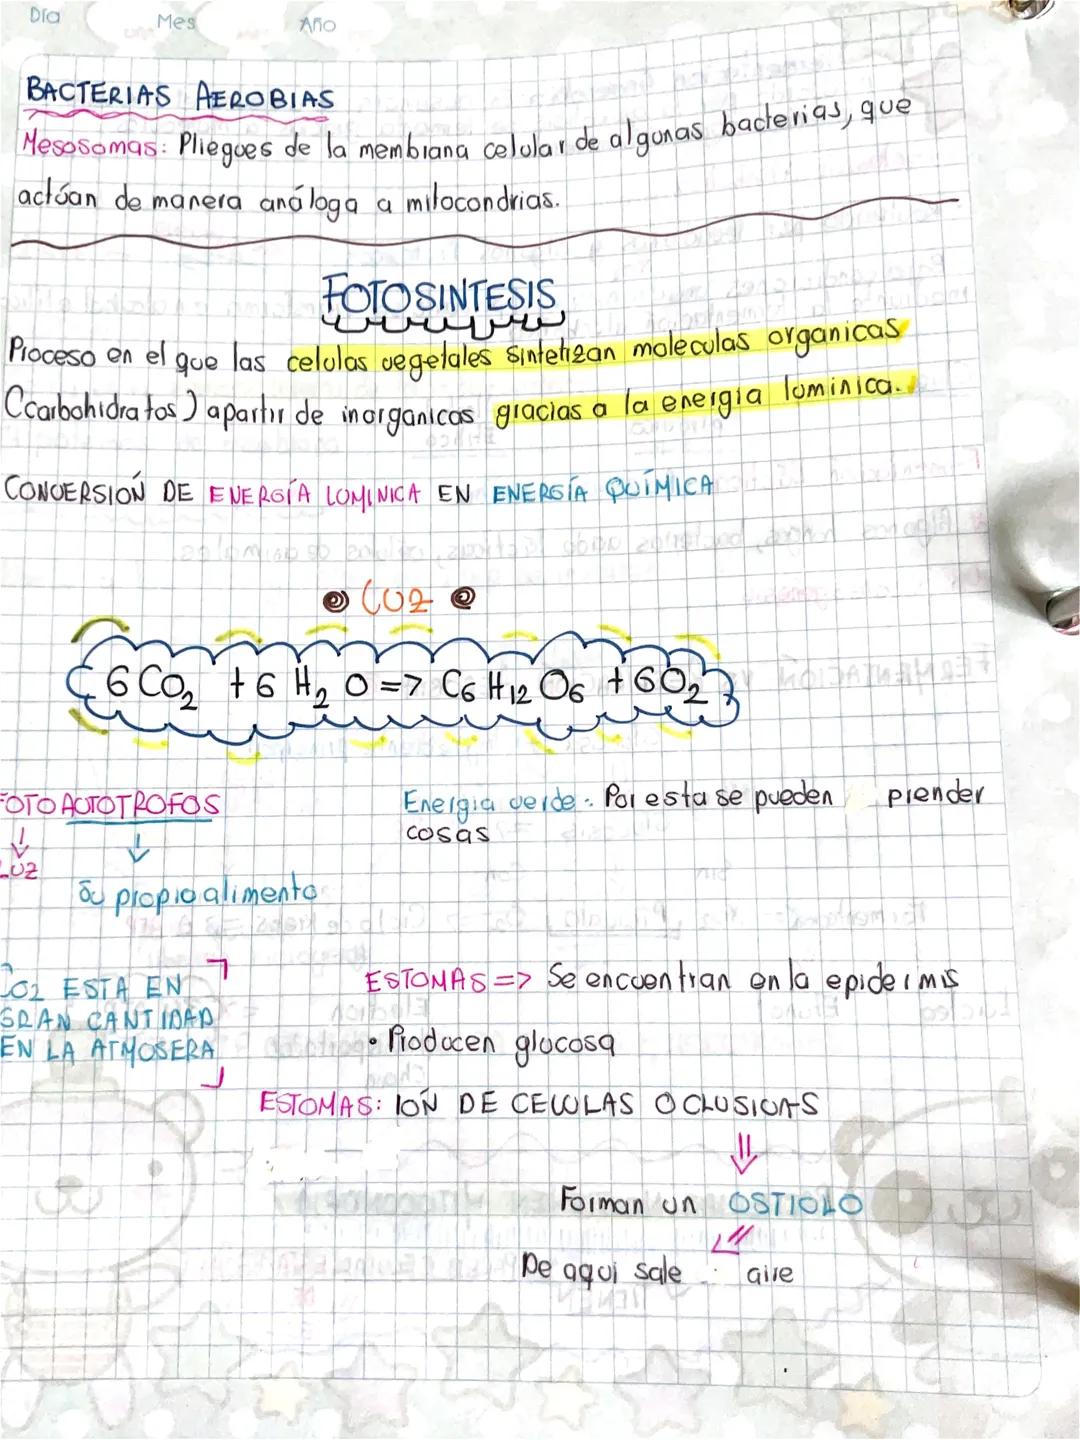 Día Mes Año
BACTERIAS AEROBIAS
Mesosomas: Pliegues de la membrana celular de algunas bacterias, que
actúan de manera análoga a mitocondrias.
FOTOSINTESIS
Proceso en el que las celulas vegetales sintetizan moleculas organicas
(carbohidratos) apartir de inorganicas gracias a la energia luminica.
CONVERSIOŃ DE ENERGÍA LUMINICA EN ENERGÍA QUÍMICA
LUZ
6 CO₂ + 6 H₂ O => C6 H12 O6 + 6O₂
FOTOAUTOTROFOS
LUZ
Su propio alimento
Energia verde: Por esta se pueden prender
cosas
CO2 ESTA EN
GRAN CANTIDAD
EN LA ATMOSERA
ESTOMAS => Se encuentran en la epidermis
• Producen glucosa
ESTOMAS: IOŃ DE CELULAS OCLUSIVAS
Forman un OSTIOLO
De aqui sale aire